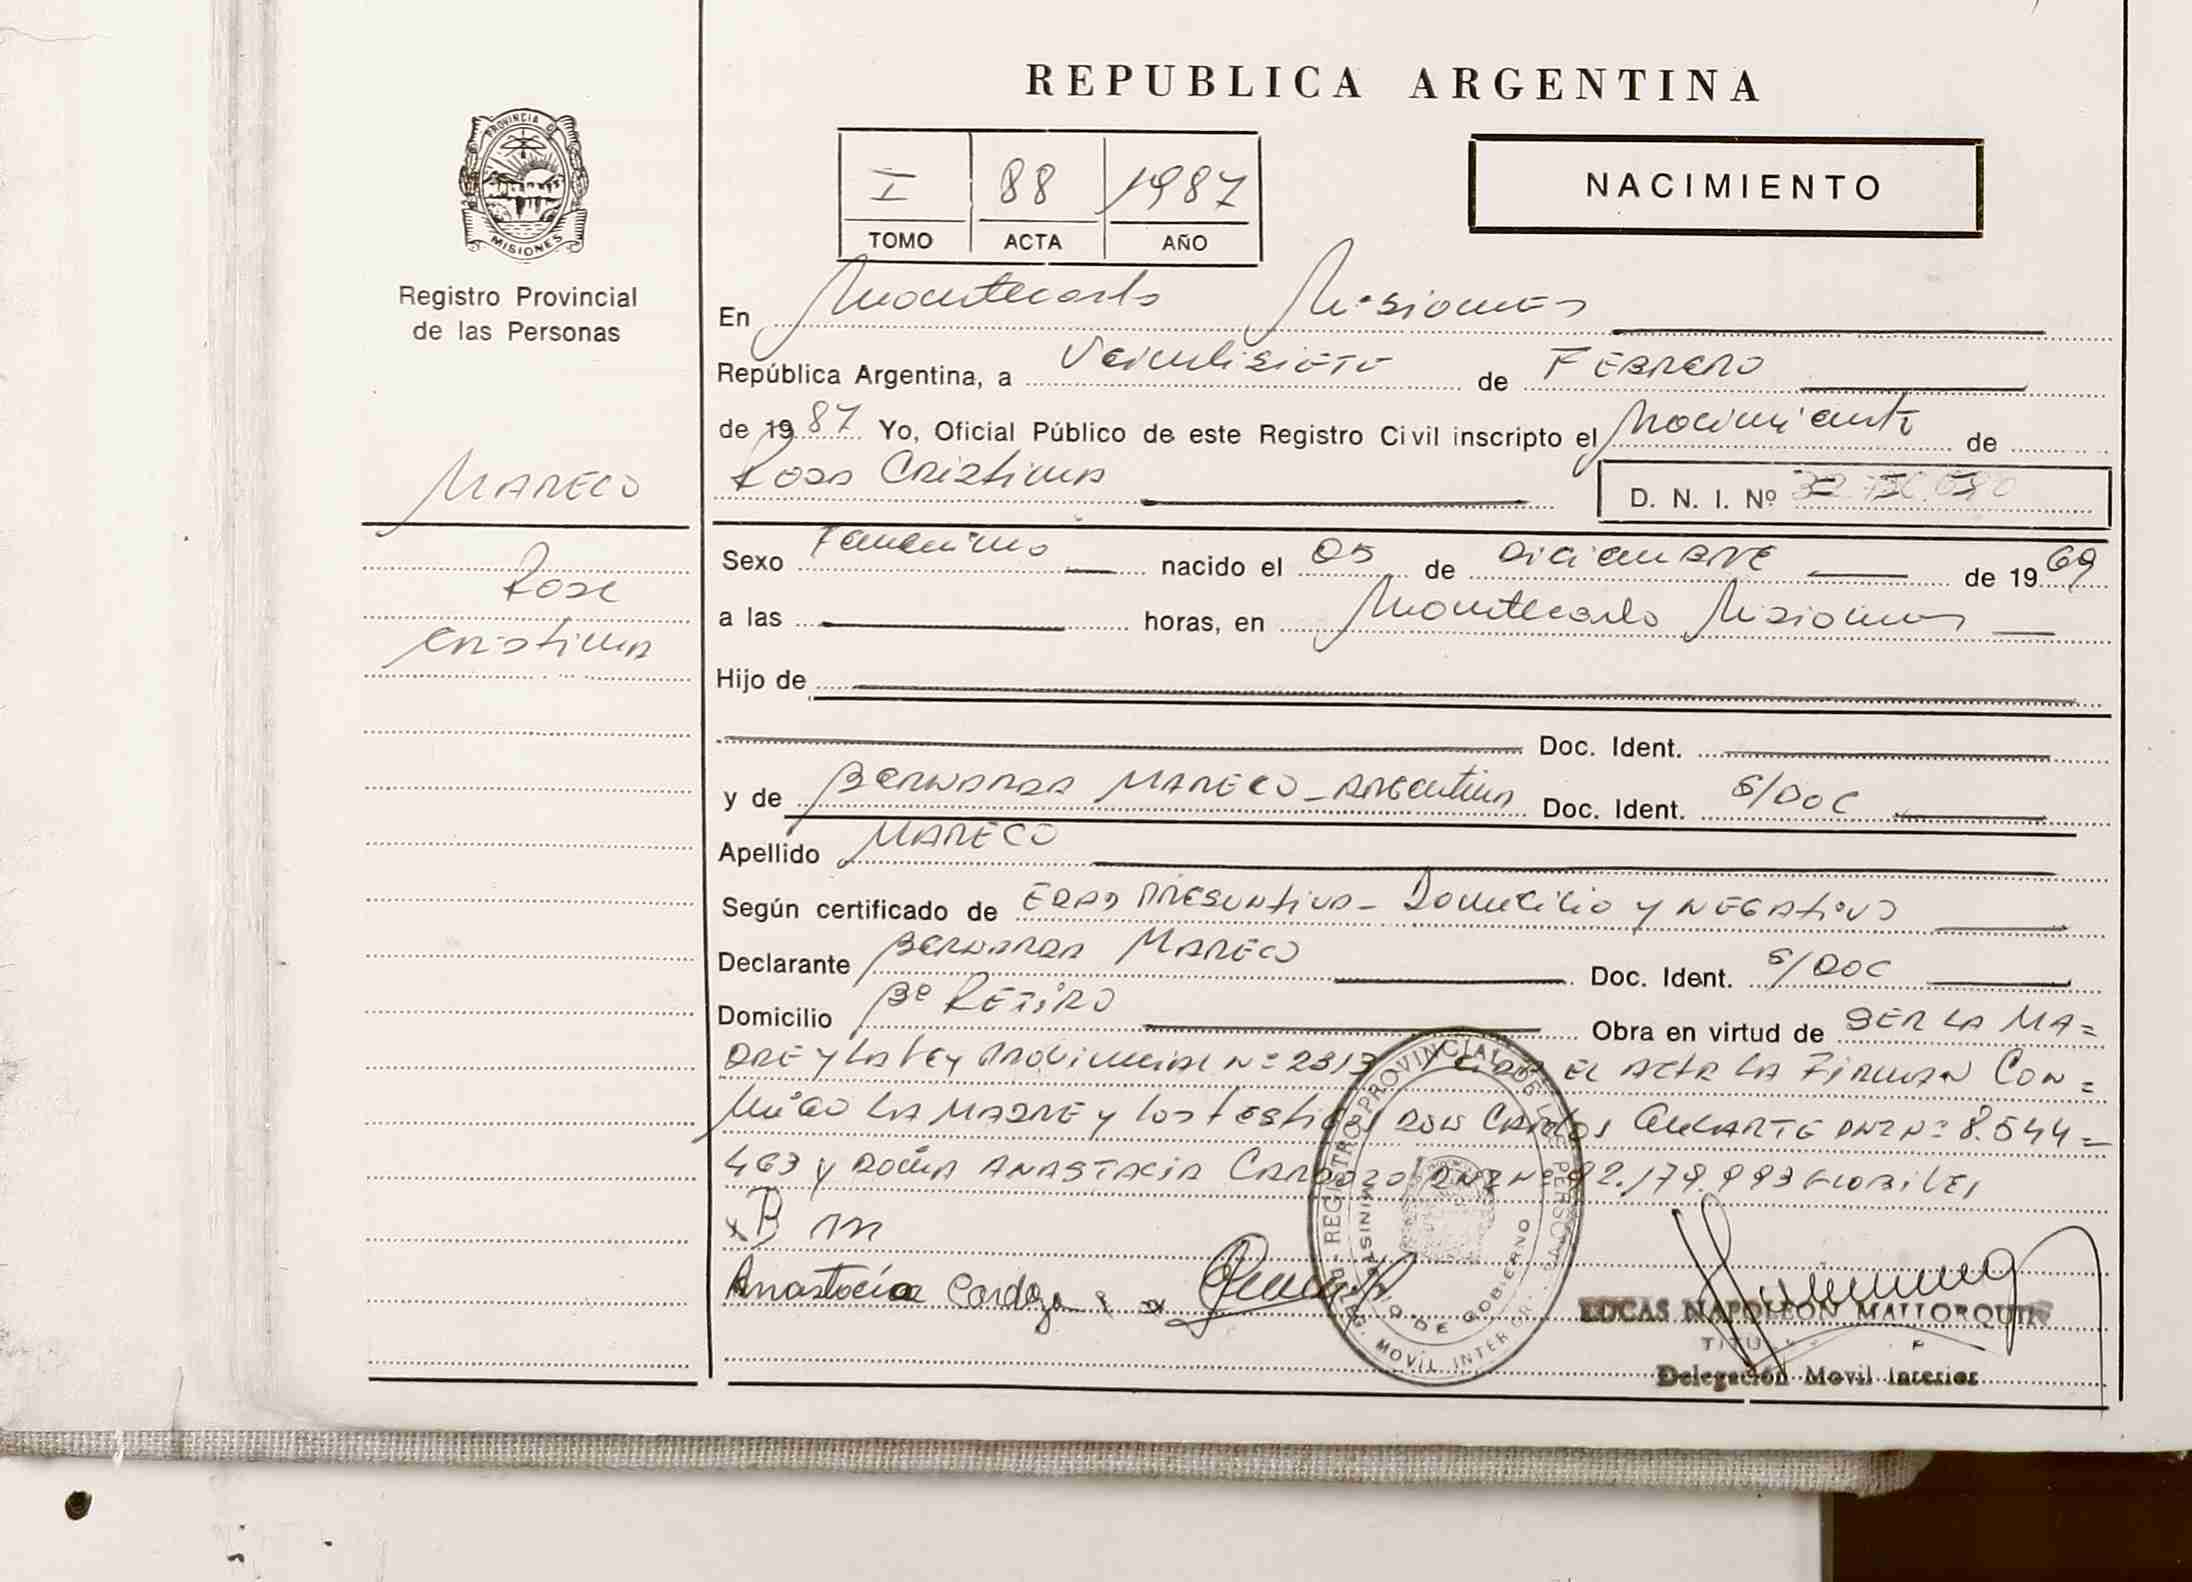 REPUBLICA ARGENTINA
PROVINCIA DE
MISIONES
Registro Provincial
de las Personas
I 88 1987
TOMO ACTA AÑO
NACIMIENTO
En Montecarlo Misiones
República Argentina, a Veintisiete de FEBRERO
de 1987 Yo, Oficial Público de este Registro Civil inscripto el Nacimiento de
MARECO
Rosa Cristina
D. N. I. Nº
Rosa
Cristina
Sexo Femenino nacido el 05 de DICIEMBRE de 1969
a las horas, en Montecarlo Misiones
Hijo de
Doc. Ident.
y de BERNARDA MARECO - ARGENTINA Doc. Ident. S/DOC
Apellido MARECO
Según certificado de EDAD PRESUNTIVA - Domicilio y NEGATIVO
Declarante BERNARDA MARECO Doc. Ident. S/DOC
Domicilio Bº RETIRO Obra en virtud de SER LA MA=
DRE y LA LEY PROVINCIAL Nº 2313 EL ACTA LA FIRMAN CON=
MIGO LA MADRE y LOS TESTIGOS DON CARLOS DNI Nº 8.544=
463 y DOÑA ANASTACIA CARDOZO DNI Nº 92.179.993 HABILES
x B m
Anastacia Cardozo
REGISTRO PROVINCIAL DE LAS PERSONAS
MINISTERIO DE GOBIERNO
DELEG. MOVIL INTERIOR
LUCAS NAPOLEON MALLORQUIN
Delegación Movil Interior